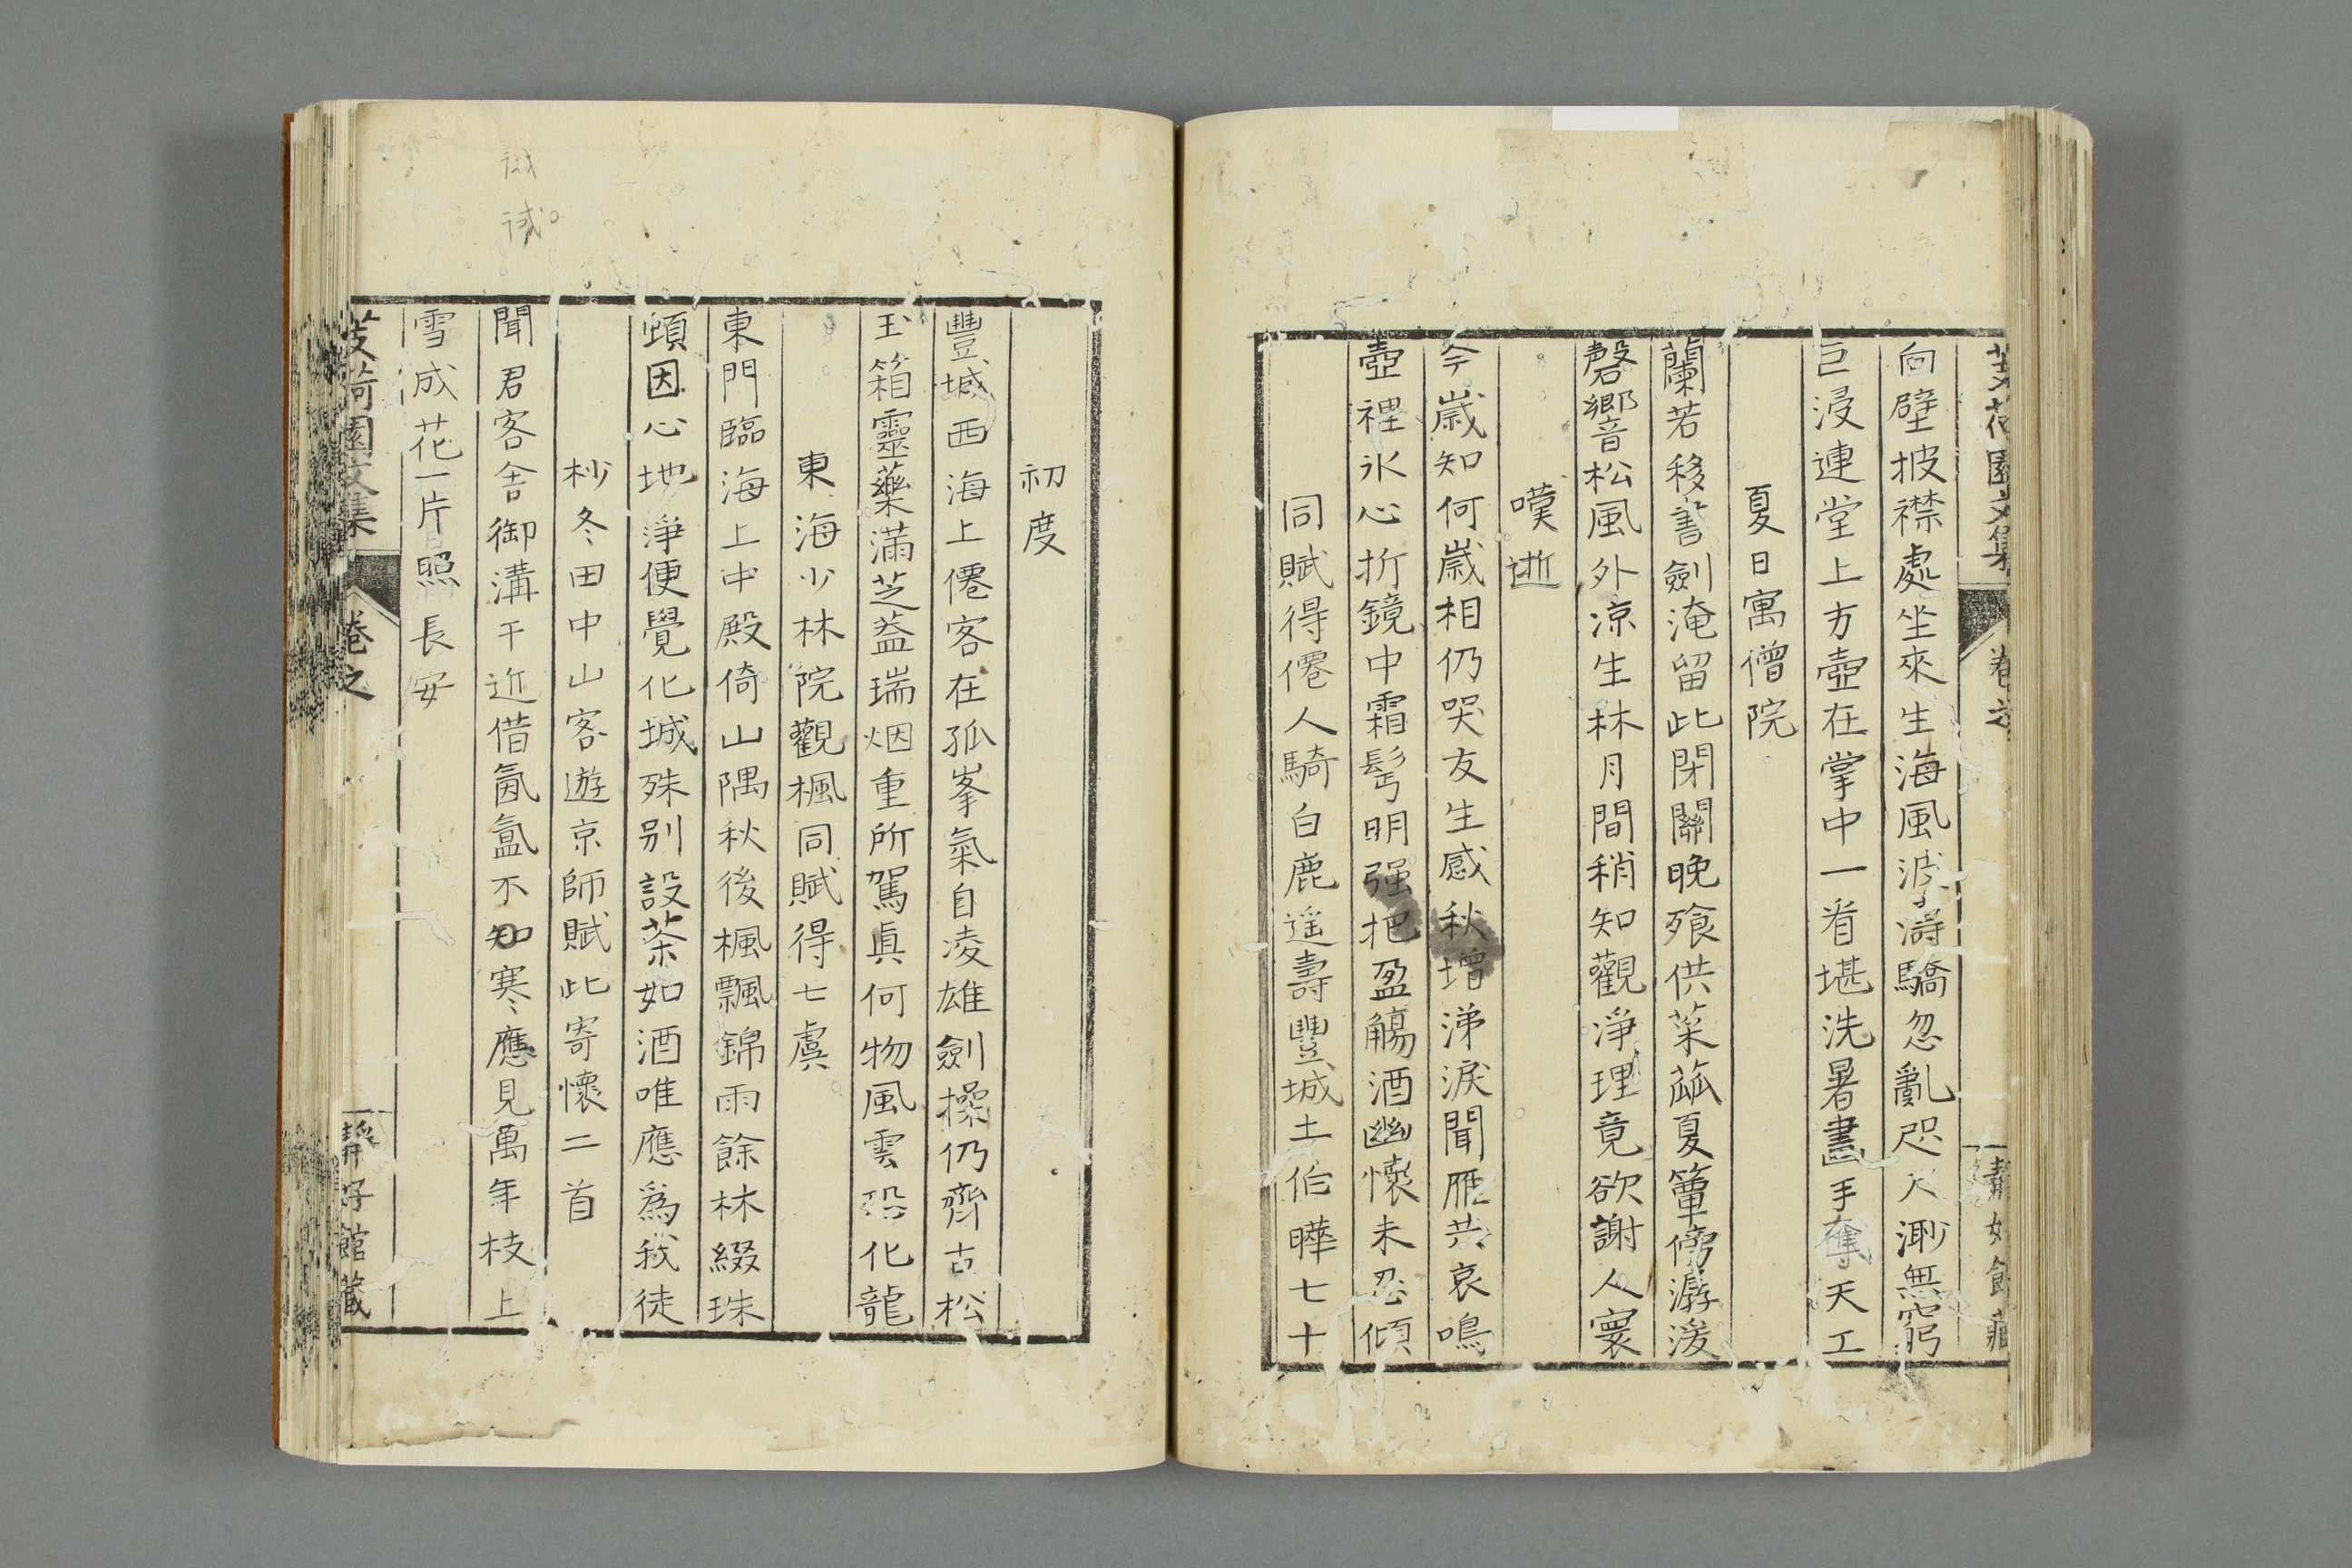 芰荷園文集 卷之 靜好館藏
向壁披襟處坐來生海風波濤驕忽亂咫尺渺無窮
巨浸連堂上方壺在掌中一看堪洗暑畫手奪天工
夏日寓僧院
蘭若移書劍淹留此閉關晚飱供菜苽夏簟傍潺湲
磬響松風外凉生林月間稍知觀淨理竟欲謝人寰
嘆逝
今歲知何歲相仍哭友生感秋增涕淚聞雁共哀鳴
壺裡氷心折鏡中霜髩明强把盈觴酒幽懷未忍傾
同賦得僊人騎白鹿遥壽豐城土伯曄七十
初度
豐城西海上僊客在孤峯氣自凌雄劍操仍齊古松
玉箱靈藥滿芝葢瑞烟重所駕眞何物風雲恐化龍
東海少林院觀楓同賦得七虞
東門臨海上中殿倚山隅秋後楓飄錦雨餘林綴珠
頓因心地淨便覺化城殊别設茶如酒唯應爲我徒
杪冬田中山客遊京師賦此寄懷二首
聞君客舎御溝干近借氤氳不知寒應見萬年枝上
雪成花一片照長安
芰荷園文集 卷之 靜好館藏